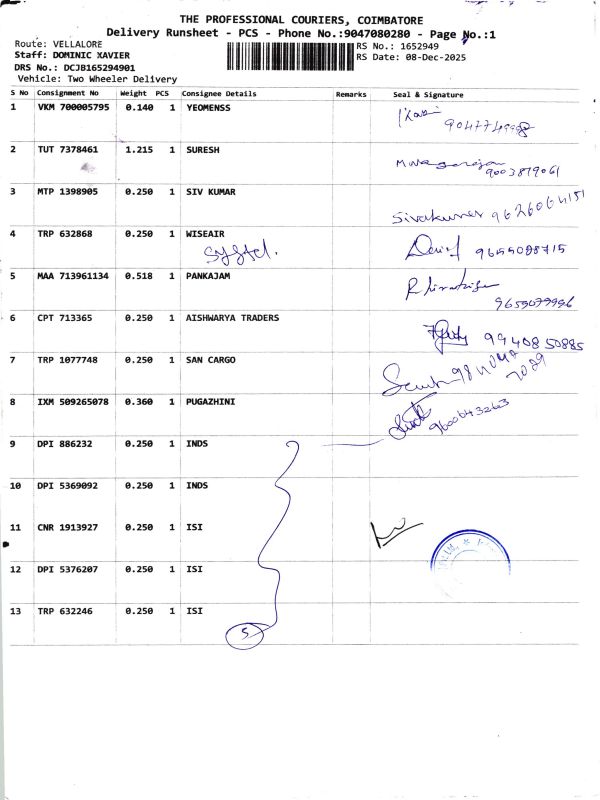 THE PROFESSIONAL COURIERS, COIMBATORE
Delivery Runsheet - PCS - Phone No.:9047080280 - Page No.:1
Route: VELLALORE
RS No.: 1652949
Staff: DOMINIC XAVIER
RS Date: 08-Dec-2025
DRS No.: DCJB165294901
Vehicle: Two Wheeler Delivery
S No Consignment No Weight PCS Consignee Details Remarks Seal & Signature
1 VKM 700005795 0.140 1 YEOMENSS
2 TUT 7378461 1.215 1 SURESH
9003879061
3 MTP 1398905 0.250 1 SIV KUMAR
Sivakumar 9626064151
4 TRP 632868 0.250 1 WISEAIR
9655088715
5 MAA 713961134 0.518 1 PANKAJAM
9659079996
6 CPT 713365 0.250 1 AISHWARYA TRADERS
99408 50885
7 TRP 1077748 0.250 1 SAN CARGO
8 IXM 509265078 0.360 1 PUGAZHINI
9600643263
9 DPI 886232 0.250 1 INDS
10 DPI 5369092 0.250 1 INDS
11 CNR 1913927 0.250 1 ISI
12 DPI 5376207 0.250 1 ISI
13 TRP 632246 0.250 1 ISI
5